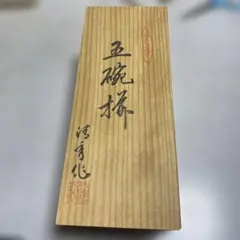 五碗揃
清秀作